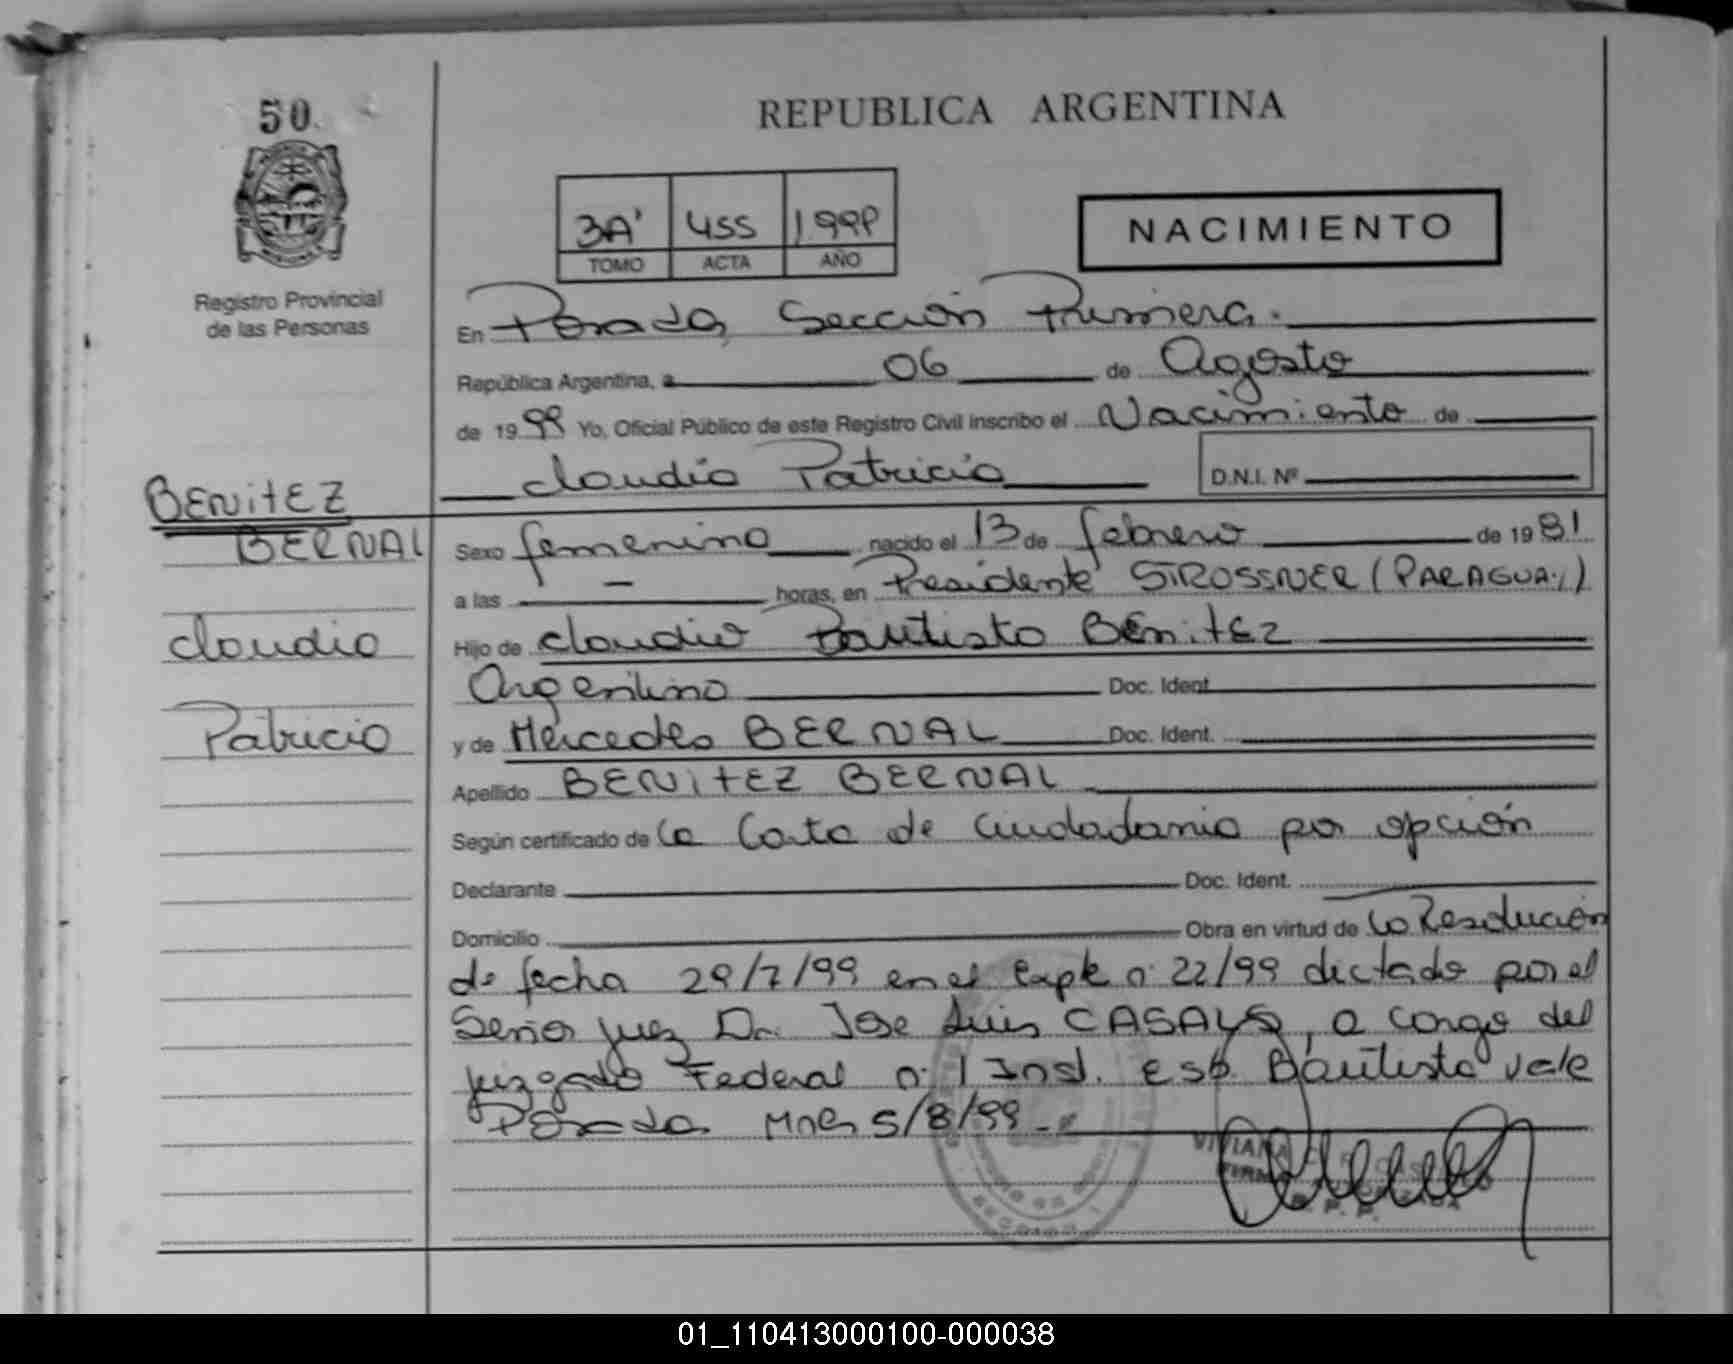 50
REPUBLICA ARGENTINA
Registro Provincial
de las Personas
3A' 455 1999
TOMO ACTA AÑO
NACIMIENTO
En Posadas, Sección Primera.
República Argentina, a 06 de Agosto
de 1999 Yo, Oficial Público de este Registro Civil inscribo el Nacimiento de
Claudia Patricia D.N.I. Nº
BENITEZ
BERNAL
Claudia
Patricia
Sexo femenino nacido el 13 de febrero de 1981
a las - horas, en Presidente STROSSNER (PARAGUAY)
Hijo de Claudio Bautista BENITEZ
Argentino Doc. Ident.
y de Mercedes BERNAL Doc. Ident.
Apellido BENITEZ BERNAL
Según certificado de la Carta de Ciudadania por opción
Declarante Doc. Ident.
Domicilio Obra en virtud de la Resolución
de fecha 29/7/99 en el Expte nº 22/99 dictado por el
Señor Juez Dr. Jose Luis CASALS, a cargo del
Juzgado Federal nº 1 Inst. Esp. Bautista vale
Posadas Mnes 5/8/99.-
01_110413000100-000038